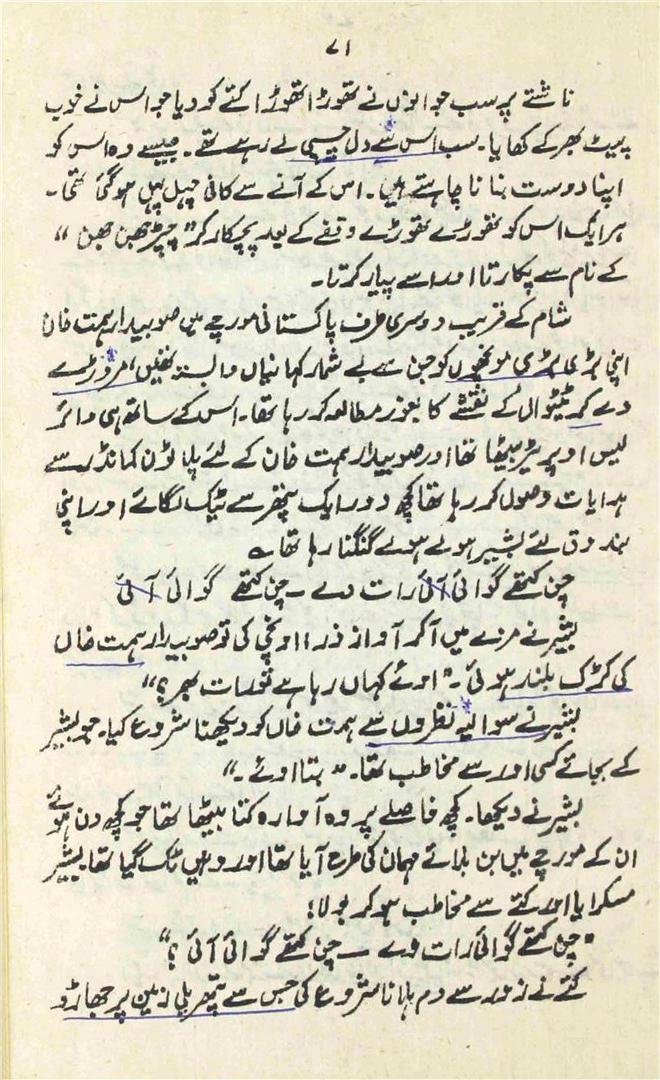 ۷۱
ناشتے پر سب جوانوں نے تھوڑا تھوڑا کتے کو دیا جو اس نے خوب
پیٹ بھر کے کھایا۔ سب اس سے دل چسپی لے رہے تھے۔ جیسے وہ اس کو
اپنا دوست بنانا چاہتے ہیں۔ اس کے آنے سے کافی چہل پہل ہو گئی تھی۔
ہر ایک اس کو تھوڑے تھوڑے وقفے کے بعد پچکار کر ”چپڑ جھن جھن“
کے نام سے پکارتا اور اسے پیار کرتا۔
شام کے قریب دوسری طرف پاکستانی مورچے میں صوبیدار ہمت خان
اپنی بڑی بڑی مونچھوں کو جن سے بے شمار کہانیاں وابستہ تھیں، مروڑے
دے کر ٹیٹوال کے نقشے کا بغور مطالعہ کر رہا تھا۔ اس کے ساتھ ہی وائر
لیس اوپریٹر بیٹھا تھا اور صوبیدار ہمت خان کے لئے پلاٹون کمانڈر سے
ہدایات وصول کر رہا تھا کچھ دور ایک پتھر سے ٹیک لگائے اور اپنی
بندوق لئے بشیر ہولے ہولے گنگنا رہا تھا۔
چن کتھے گوائی آئی رات وے ۔ چن کتھے گوائی آئی
بشیر نے مزے میں آ کر آواز ذرا اونچی کی تو صوبیدار ہمت خاں
کی کڑک بلند ہوئی۔ ”اوئے کہاں رہا ہے تو رات بھر؟“
بشیر نے سوالیہ نظروں سے ہمت خاں کو دیکھنا شروع کیا۔ جو بشیر
کے بجائے کسی اور سے مخاطب تھا۔ ”بتا اوئے۔“
بشیر نے دیکھا۔ کچھ فاصلے پر وہ آوارہ کتا بیٹھا تھا جو کچھ دن ہوئے
ان کے مورچے میں بن بلائے مہمان کی طرح آیا تھا اور وہیں ٹک گیا تھا۔ بشیر
مسکرایا اور کتے سے مخاطب ہو کر بولا؛
”چن کتھے گوائی رات وے ۔ چن کتھے گوائی آئی؟“
کتے نے زور سے دم ہلانا شروع کی جس سے پتھریلی زمین پر جھاڑو